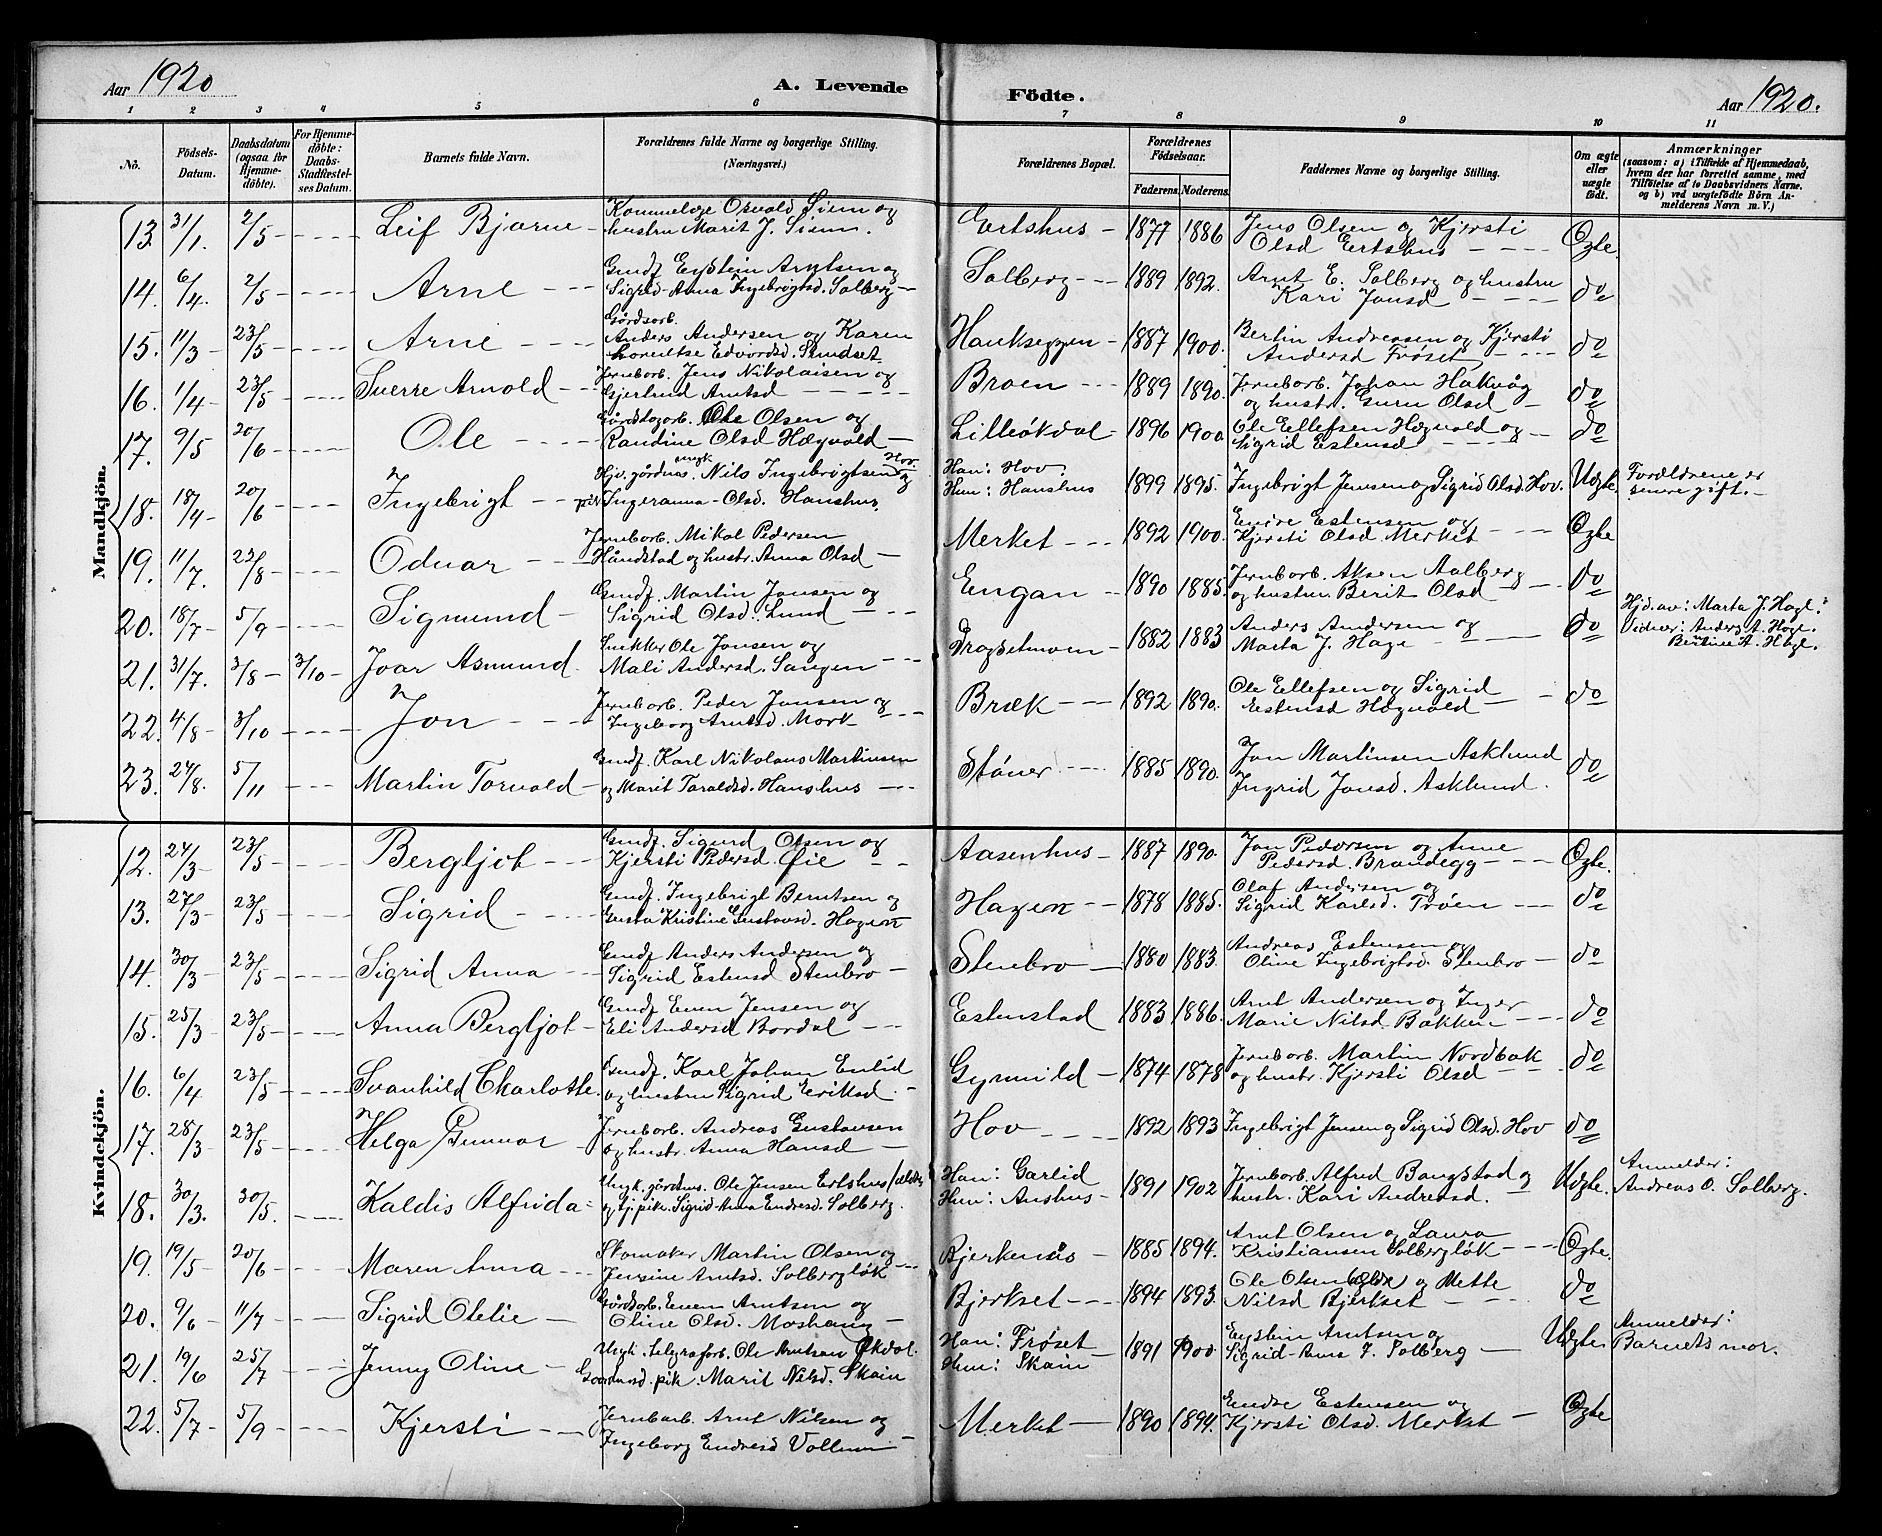 Aar 1920 A. Levende Födte. Aar 1920.
1 2 3 4 5 6 7 8 9 10 11
No. Födsels-Datum. Daabsdatum (ogsaa for Hjemmedöbte). For Hjemmedöbte: Daabs-Stadfæstelses Datum. Barnets fulde Navn. Forældrenes fulde Navne og borgerlige Stilling. (Næringsvei.) Forældrenes Bopæl. Forældrenes Födselsaar. Faderens. Moderens. Faddernes Navne og borgerlige Stilling. Om ægte eller uægte födt. Anmærkninger (saasom: a) i Tilfælde af Hjemmedaab, hvem der har forrettet samme, med Tilföielse af to Daabsvidners Navne, og b) ved uægtefödte Börn Anmelderens Navn m. V.)
Mandkjön.
13. 31/1. 2/5 Leif Bjarne Osvald Siem og hustru Marit J. Siem. Ertshus 1877 1886 Jens Olsen og Kjersti Olsd Ertshus Ægte.
14. 6/4. 2/5 Arne Gmdf. Eystein Arntsen og Sigrid-Anna Ingebrigtsd. Solberg Solberg 1889 1892. Arnt E. Solberg og hustru Kari Jonsd do
15. 11/3 23/5 Arne Gårdsarb. Anders Andersen og Karen Lorentse Edvardsd. Skudset Haukseggen 1887 1900. Bertin Andreasen og Kjersti Andersd Frøset do
16. 1/4 23/5 Sverre Arnold Jernbarb. Jens Nikolaisen og Gjertrud Arntsd Broen 1889 1890. Jernbarb. Johan Hakvåg og hustr. Guru Olsd do
17. 9/5 20/6 Ole Ole Olsen og Randine Olsd Hægvold Lilleökdal 1896 1900 Ole Ellefsen Hægvold og Sigrid Estensd do
18. 18/4 20/6 Ingebrigt Hjv. gårdms. ungk Nils Ingebrigtsen Hov og pik Ingeranna Olsd. Hanshus. Han: Hov. Hun: Hanshus 1899 1895. Ingebrigt Jensen og Sigrid Olsd. Hov. Uægte. Forældrene er senere gift.
19. 11/7. 22/8 Odvar Jernbarb. Mikal Pedersen Håndstad og hustr. Anna Olsd Merket 1892 1900. Endre Estensen og Kjersti Olsd Merket Ægte
20. 18/7 5/9 Sigmund Gmdf. Martin Jonsen og Sigrid Olsd. Lund Engan 1890 1885. Jernbarb. Aksen Aalberg og hustru Berit Olsd do
21. 31/7. 3/8 3/10 Joar Asmund Snekker Ole Jonsen og Mali Andersd. Sangen 1882 1883 Anders Andersen og Marta J. Hage do Hjd. av: Marta J. Hage. Vidner: Anders A. Hage.
22. 4/8 3/10 Jon Jernbarb. Peder Jonsen og Ingeborg Arntsd. Mork Bræk 1892 1890. Ole Ellefsen og Sigrid Estensd Hægvold do
23. 24/8. 5/11 Martin Torvald Gmdf. Karl Nikolaus Martinsen og Marit Taraldsd. Hanshus Støner 1885 1890. Jon Martinsen Asklund Ingrid Jonsd. Asklund. do
Kvindekjön.
12. 24/3 23/5 Bergljot Gmdf. Sigurd Olsen og Kjersti Pedersd. Øie Aasenhus 1887 1890. Jon Pedersen og Anne Pedersd. Brandegg Ægte.
13. 27/3 23/5 Sigrid Gmdf. Ingebrigt Berntsen og Gusta Kristine Gustavsd. Hagen Hagen 1878 1885. Olaf Andersen og Sigrid Karlsd. Trøen do
14. 30/3 23/5 Sigrid Anna Gmdf Anders Andersen og Sigrid Estensd Stenbro Stenbro 1880 1883. Andreas Estensen og Oline Ingebrigtsd. Stenbro do
15. 25/3 23/5 Anna Bergljot Gmdf Even Jensen og Eli Andersd Bordal Estenstad 1883 1886. Arnt Andersen og Inger Marie Nilsd Bakken do
16. 6/4 23/5 Svanhild Charlotte Gmdf. Karl Johan Enlid og hustru Sigrid Eriksd Gynnild 1874 1878 Jernbarb. Martin Nordbak og hustr. Kjersti Olsd do
17. 28/3 23/5 Helga Gunvor Jernbarb. Andreas Gustavsen og hustr. Anna Hansd Hov 1892 1893 Ingebrigt Jensen og Sigrid Olsd. Hov do
18. 30/3. 30/5. Kaldis Alfrida Ungk. gårdms. Ole Jensen Ertshus og tj. pik. Sigrid-Anna Endresd. Solberg. Han: Garlid Hun: Aushus 1891 1902 Jernbarb. Alfred Bangstad og hustr. Kari Andreasd. Uægte. Anmelder: Andreas O. Solberg.
19. 19/5 20/6 Maren Anna Skomaker Martin Olsen og Jensine Arntsd. Solbergløk Bjerkenås 1885 1894. Arnt Olsen og Laura Kristiansen Solbergløk Ægte.
20. 9/6 11/7 Sigrid Otelie Gårdsarb. Even Arntsen og Oline Olsd. Moshaug Bjerkset 1894 1893. Ole Olsen (eldre) og Mette Nilsd Bjerkset do
21. 19/6 25/7 Jenny Oline Ungk. telegrafarb. Ole Arntsen Økdal. pik. Marit Nilsd. Skain Han: Frøset Hun: Skain 1891 1900. Eystein Arntsen og Sigrid-Anna I. Solberg Uægte. Anmelder: Barnets mor.
22. 5/7 5/9 Kjersti Jernbarb. Arnt Nilsen og Ingeborg Endresd Vollum Merket 1890 1894. Endre Estensen og Kjersti Olsd. Merket Ægte